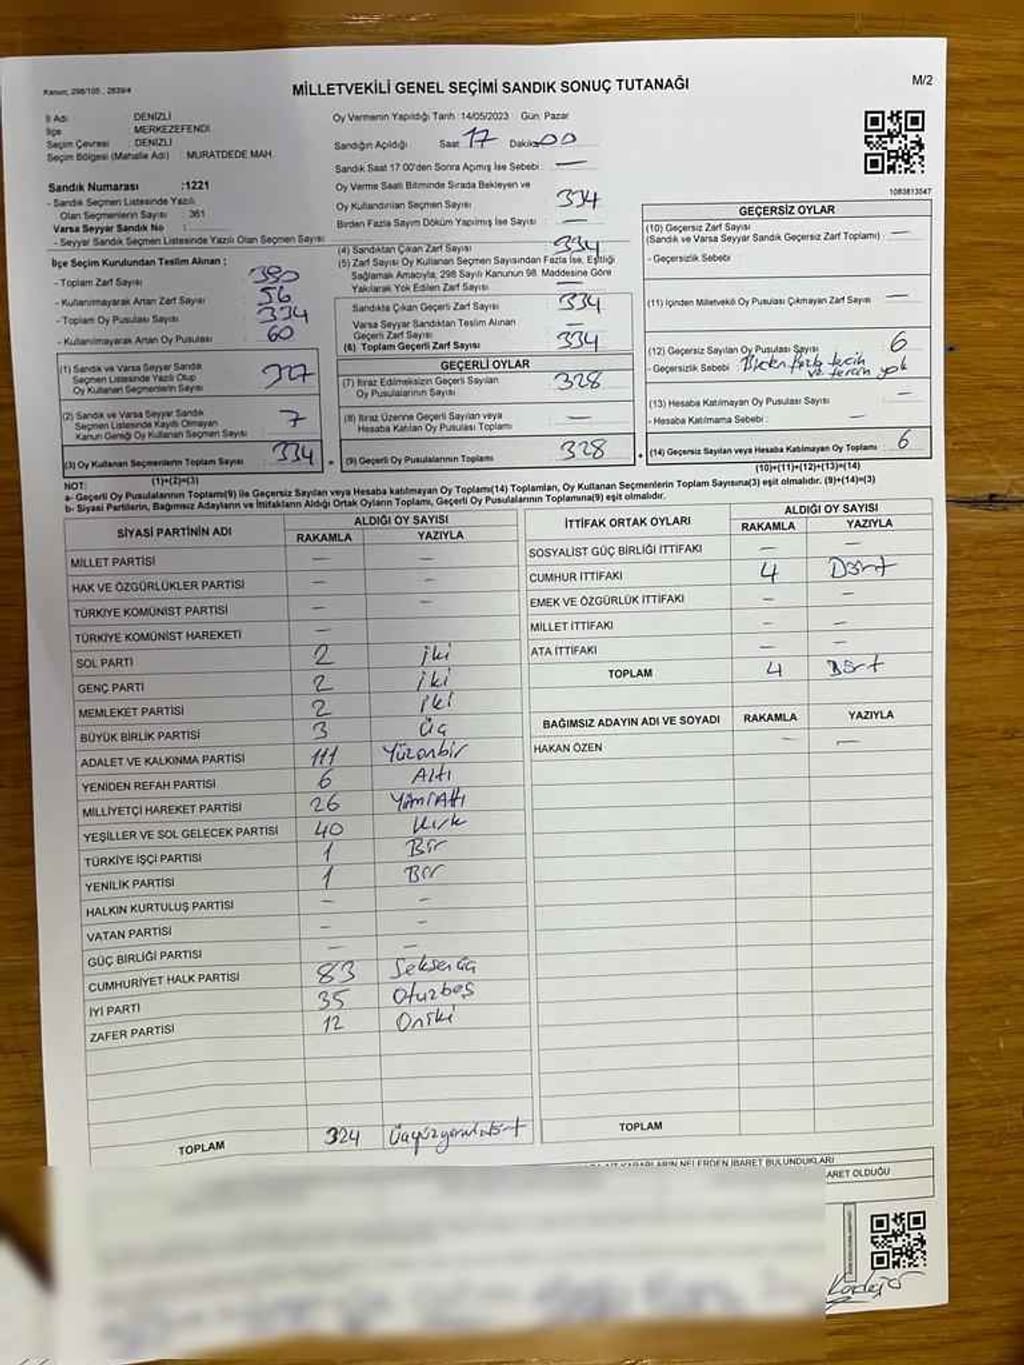 Kanun; 298/105 , 2839/4
MİLLETVEKİLİ GENEL SEÇİMİ SANDIK SONUÇ TUTANAĞI
M/2
İl Adı DENİZLİ
İlçe MERKEZEFENDİ
Seçim Çevresi : DENİZLİ
Seçim Bölgesi (Mahalle Adı) : MURATDEDE MAH.
Sandık Numarası :1221
- Sandık Seçmen Listesinde Yazılı
Olan Seçmenlerin Sayısı : 361
Varsa Seyyar Sandık No :
- Seyyar Sandık Seçmen Listesinde Yazılı Olan Seçmen Sayısı
İlçe Seçim Kurulundan Teslim Alınan :
- Toplam Zarf Sayısı 390
- Kullanılmayarak Artan Zarf Sayısı 56
- Toplam Oy Pusulası Sayısı 334
- Kullanılmayarak Artan Oy Pusulası 60
(1) Sandık ve Varsa Seyyar Sandık
Seçmen Listesinde Yazılı Olup
Oy Kullanan Seçmenlerin Sayısı 327
(2) Sandık ve Varsa Seyyar Sandık
Seçmen Listesinde Kayıtlı Olmayan
Kanun Gereği Oy Kullanan Seçmen Sayısı 7
(3) Oy Kullanan Seçmenlerin Toplam Sayısı 334
(1)+(2)=(3)
Oy Vermenin Yapıldığı Tarih : 14/05/2023 Gün: Pazar
Sandığın Açıldığı Saat 17 Dakika 00
Sandık Saat 17:00'den Sonra Açımış İse Sebebi : —
Oy Verme Saati Bitiminde Sırada Bekleyen ve
Oy Kullandırılan Seçmen Sayısı 334
Birden Fazla Sayım Döküm Yapılmış İse Sayısı —
(4) Sandıktan Çıkan Zarf Sayısı 334
(5) Zarf Sayısı Oy Kullanan Seçmen Sayısından Fazla İse, Eşitliği
Sağlamak Amacıyla; 298 Sayılı Kanunun 98. Maddesine Göre
Yakılarak Yok Edilen Zarf Sayısı —
Sandıkta Çıkan Geçerli Zarf Sayısı 334
Varsa Seyyar Sandıktan Teslim Alınan
Geçerli Zarf Sayısı —
(6) Toplam Geçerli Zarf Sayısı 334
GEÇERLİ OYLAR
(7) İtiraz Edilmeksizin Geçerli Sayılan
Oy Pusulalarının Sayısı 328
(8) İtiraz Üzerine Geçerli Sayılan veya
Hesaba Katılan Oy Pusulası Toplamı —
(9) Geçerli Oy Pusulalarının Toplamı 328
1083813547
GEÇERSİZ OYLAR
(10) Geçersiz Zarf Sayısı
(Sandık ve Varsa Seyyar Sandık Geçersiz Zarf Toplamı) : —
- Geçersizlik Sebebi
(11) İçinden Milletvekili Oy Pusulası Çıkmayan Zarf Sayısı —
(12) Geçersiz Sayılan Oy Pusulası Sayısı 6
- Geçersizlik Sebebi : Birden fazla tercih
ve tercih yok
(13) Hesaba Katılmayan Oy Pusulası Sayısı —
- Hesaba Katılmama Sebebi : —
(14) Geçersiz Sayılan veya Hesaba Katılmayan Oy Toplamı 6
(10)+(11)+(12)+(13)=(14)
NOT:
a- Geçerli Oy Pusulalarının Toplamı(9) ile Geçersiz Sayılan veya Hesaba katılmayan Oy Toplamı(14) Toplamları, Oy Kullanan Seçmenlerin Toplam Sayısına(3) eşit olmalıdır. (9)+(14)=(3)
b- Siyasi Partilerin, Bağımsız Adayların ve İttifakların Aldığı Ortak Oyların Toplamı, Geçerli Oy Pusulalarının Toplamına(9) eşit olmalıdır.
SİYASİ PARTİNİN ADI ALDIĞI OY SAYISI
RAKAMLA YAZIYLA
MİLLET PARTİSİ — —
HAK VE ÖZGÜRLÜKLER PARTİSİ — —
TÜRKİYE KOMÜNİST PARTİSİ — —
TÜRKİYE KOMÜNİST HAREKETİ —
SOL PARTİ 2 iki
GENÇ PARTİ 2 iki
MEMLEKET PARTİSİ 2 iki
BÜYÜK BİRLİK PARTİSİ 3 üç
ADALET VE KALKINMA PARTİSİ 111 Yüzonbir
YENİDEN REFAH PARTİSİ 6 Altı
MİLLİYETÇİ HAREKET PARTİSİ 26 Yirmi Altı
YEŞİLLER VE SOL GELECEK PARTİSİ 40 Kırk
TÜRKİYE İŞÇİ PARTİSİ 1 Bir
YENİLİK PARTİSİ 1 Bir
HALKIN KURTULUŞ PARTİSİ — —
VATAN PARTİSİ — —
GÜÇ BİRLİĞİ PARTİSİ — —
CUMHURİYET HALK PARTİSİ 83 Seksenüç
İYİ PARTİ 35 Otuzbeş
ZAFER PARTİSİ 12 Oniki
TOPLAM 324 Üçyüzyirmidört
İTTİFAK ORTAK OYLARI ALDIĞI OY SAYISI
RAKAMLA YAZIYLA
SOSYALİST GÜÇ BİRLİĞİ İTTİFAKI — —
CUMHUR İTTİFAKI 4 Dört
EMEK VE ÖZGÜRLÜK İTTİFAKI — —
MİLLET İTTİFAKI — —
ATA İTTİFAKI — —
TOPLAM 4 Dört
BAĞIMSIZ ADAYIN ADI VE SOYADI RAKAMLA YAZIYLA
HAKAN ÖZEN — —
TOPLAM
NELERDEN İBARET BULUNDUKLARI
ARET OLDUĞU